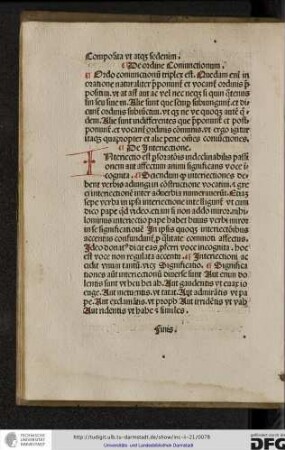 Composita vt atqз sedenim.
De ordine Coniunctionum.
Ordo coniunctionũ triplex est. Quedam eni in
oratione naturaliter pponunt et vocant ordinis p
positiui. vt at ast aut ac vel nec neqз si quin
sin seu siue ni. Alie sunt que semp subiungunt et di
cunt ordinis subiunctiui. vt qз ne ve quoqз
dem. Alie sunt indifferentes que pponunt et post
ponunt. et vocant ordinis cõmunis. vt ergo igitur
itaqз quapropter et alie pene omnes coniunctiones.
De Interiectione.
Interiectio est ps orationis indeclinabilis passi
onem aut affectum animi significans voce in
cognita. Sciendum q interiectiones de
bent verbis adiungi in cõstructione vocatiua. Gre
ci interiectionẽ inter aduerbia numerauerunt. Quia
sepe verba in ipsa interiectione intelligunt vt cum
dico pape qd video. etiam si non addo miror. nihi
lominus interiectio pape habet huius verbi miror
in se significationẽ. In ipsis quoqз interiectionibus
accentus confundunt p qualitate commoti affectus.
Ideo donatus dicit eas pferri voce incognita. hoc
est voce non regulata accentu. Interiectioni ac
cidit vnum tantũ. videlicet Significatio. Significa
tiones aũt interiectionũ diuerse sunt Aut enim do
lentis sunt vt heu hei ah. Aut gaudentis vt euax io
euge. Aut metuentis. vt tatat. Aut admirãtis vt pa
pe. Aut exclamãtis. vt proph Aut irridẽtis vt vah
Aut ridentis vt hahe et similes.
Finis.
TECHNISCHE UNIVERSITÄT DARMSTADT
http://tudigit.ulb.tu-darmstadt.de/show/inc-ii-21/0079
Universitäts- und Landesbibliothek Darmstadt
gefördert durch die
DFG